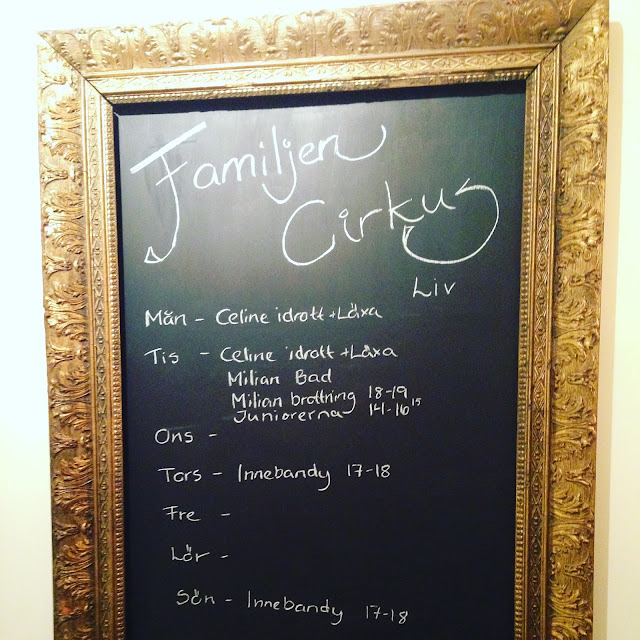 Familjen
Cirkus
Liv
Mån - Celine idrott + Läxa
Tis - Celine idrott + Läxa
Milian Bad
Milian brottning 18-19
Juniorerna 14-16 15
Ons -
Tors - Innebandy 17-18
Fre -
Lör -
Sön - Innebandy 17-18